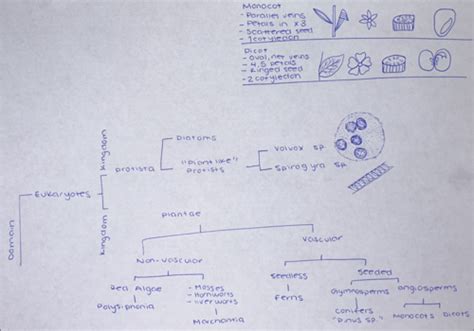 Monocot
- Parallel veins
- Petals in x3
- Scattered seed
- 1 cotyledon
Dicot
- Oval, net veins
- 4,5 petals
- Ringed seed
- 2 cotyledon
Domain
Eukaryotes
Kingdom
Protista
Diatoms
"Plant like"
Protists
Volvox sp.
Spirogyra sp
Kingdom
Plantae
Non-vascular
Vascular
Red Algae
Polysiphonia
- Mosses
- Hornworts
- Liverworts
Marchantia
Seedless
Ferns
Seeded
Gymnosperms
Conifers
"Pinus sp."
Angiosperms
Monocots
Dicots